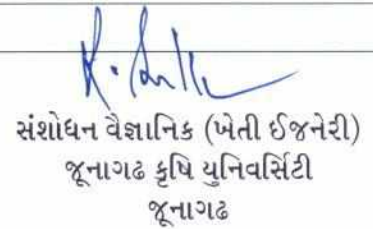 સંશોધન વૈજ્ઞાનિક (ખેતી ઈજનેરી)
જૂનાગઢ કૃષિ યુનિવર્સિટી
જૂનાગઢ